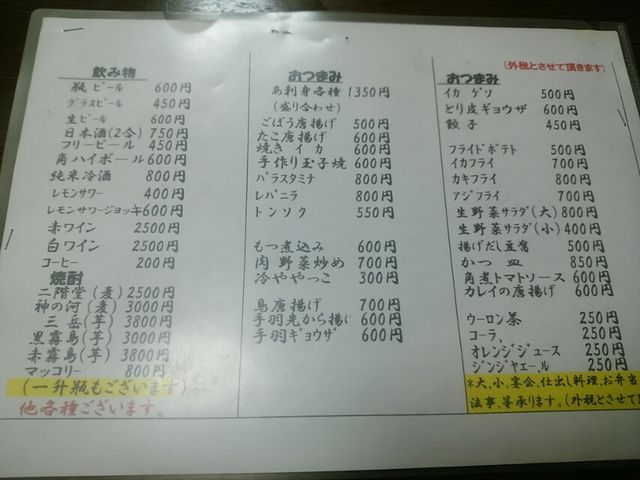 飲み物
瓶ビール 600円
グラスビール 450円
生ビール 600円
日本酒(2合) 750円
フリービール 450円
角ハイボール 600円
純米冷酒 800円
レモンサワー 400円
レモンサワージョッキ 600円
赤ワイン 2500円
白ワイン 2500円
コーヒー 200円
焼酎
二階堂(麦) 2500円
神の河(麦) 3000円
三岳(芋) 3800円
黒霧島(芋) 3000円
赤霧島(芋) 3800円
マッコリー 800円
(一升瓶もございます)
他各種ございます。
おつまみ
お刺身各種 1350円
(盛り合わせ)
ごぼう唐揚げ 500円
たこ唐揚げ 600円
焼きイカ 600円
手作り玉子焼 600円
バラスタミナ 800円
レバニラ 800円
トンソク 550円
もつ煮込み 600円
肉野菜炒め 700円
冷ややっこ 300円
鳥唐揚げ 700円
手羽先から揚げ 600円
手羽ギョウザ 600円
(外税とさせて頂きます)
おつまみ
イカゲソ 500円
とり皮ギョウザ 600円
餃子 450円
フライドポテト 500円
イカフライ 700円
カキフライ 800円
アジフライ 700円
生野菜サラダ(大) 800円
生野菜サラダ(小) 400円
揚げだし豆腐 500円
かつ皿 850円
角煮トマトソース 600円
カレイの唐揚げ 600円
ウーロン茶 250円
コーラ、 250円
オレンジジュース 250円
ジンジャエール、 250円
*大、小、宴会、仕出し料理、お弁当
法事、等承ります。(外税とさせて